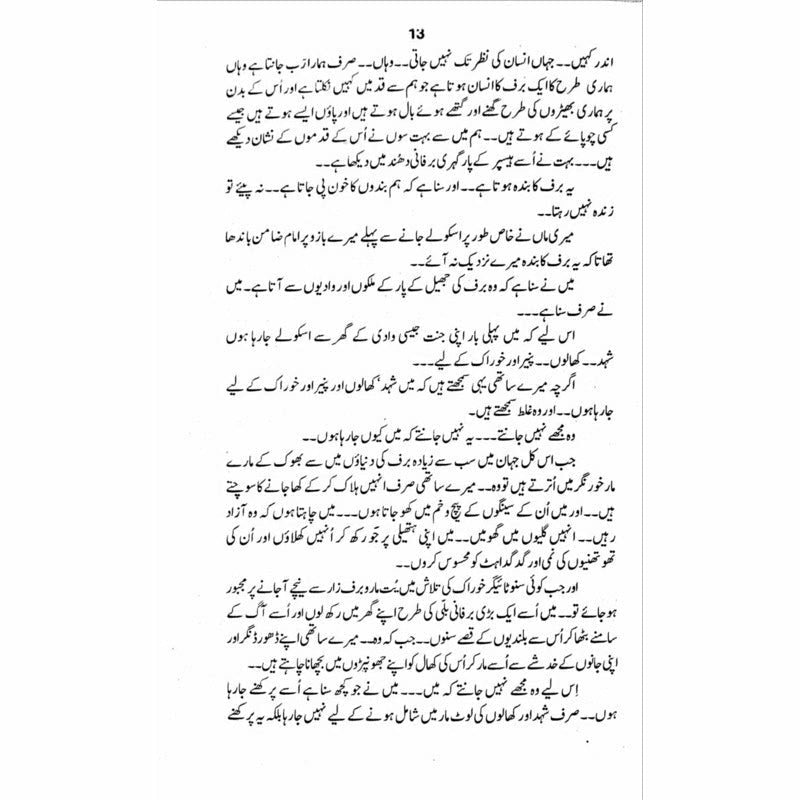 13
اندر کہیں۔۔ جہاں انسان کی نظر تک نہیں جاتی۔۔ وہاں۔۔ صرف ہمارا رَب جانتا ہے وہاں
ہماری طرح کا ایک برف کا انسان ہوتا ہے جو ہم سے قد میں کہیں نکلتا ہے اور اُس کے بدن
پر ہماری بھیڑوں کی طرح گھنے اور گتھے ہوئے بال ہوتے ہیں اور پاؤں ایسے ہوتے ہیں جیسے
کسی چوپائے کے ہوتے ہیں۔۔ ہم میں سے بہت سوں نے اُس کے قدموں کے نشان دیکھے
ہیں۔۔۔ بہت نے اُسے ہیسپر کے پار گہری برفانی دھند میں دیکھا ہے۔۔
یہ برف کا بندہ ہوتا ہے۔۔ اور سنا ہے کہ ہم بندوں کا خون پی جاتا ہے۔۔ نہ پیئے تو
زندہ نہیں رہتا۔۔
میری ماں نے خاص طور پر اسکولے جانے سے پہلے میرے بازو پر امام ضامن باندھا
تھا تاکہ یہ برف کا بندہ میرے نزدیک نہ آئے۔۔
میں نے سنا ہے کہ وہ برف کی جھیل کے پار کے ملکوں اور وادیوں سے آتا ہے۔ میں
نے صرف سنا ہے۔۔۔
اس لیے کہ میں پہلی بار اپنی جنت جیسی وادی کے گھر سے اسکولے جا رہا ہوں
شہد۔۔ کھالوں۔۔ پنیر اور خوراک کے لیے۔۔۔
اگرچہ میرے ساتھی یہی سمجھتے ہیں کہ میں شہد، کھالوں اور پنیر اور خوراک کے لیے
جا رہا ہوں۔۔ اور وہ غلط سمجھتے ہیں۔
وہ مجھے نہیں جانتے۔۔۔ یہ نہیں جانتے کہ میں کیوں جا رہا ہوں۔۔
جب اس کل جہان میں سب سے زیادہ برف کی دنیاؤں میں سے بھوک کے مارے
مارخور نگر میں اُترتے ہیں تو وہ۔۔ میرے ساتھی صرف انہیں ہلاک کر کے کھا جانے کا سوچتے
ہیں۔۔ اور میں اُن کے سینگوں کے پیچ و خم میں کھو جاتا ہوں۔۔۔ میں چاہتا ہوں کہ وہ آزاد
رہیں۔۔ انہیں گلیوں میں گھومیں۔۔ میں اپنی ہتھیلی پر جَو رکھ کر اُنہیں کھلاؤں اور اُن کی
تھوتھنیوں کی نمی اور گدگداہٹ کو محسوس کروں۔۔
اور جب کوئی سنو ٹائیگر خوراک کی تلاش میں بُت مارو برف زار سے نیچے آ جانے پر مجبور
ہو جائے تو۔۔ میں اُسے ایک بڑی برفانی بلّی کی طرح اپنے گھر میں رکھ لوں اور اُسے آگ کے
سامنے بٹھا کر اُس سے بلندیوں کے قصے سنوں۔۔ جب کہ وہ۔۔ میرے ساتھی اپنے ڈھور ڈنگر اور
اپنی جانوں کے خدشے سے اُسے مار کر اُس کی کھال کو اپنے جھونپڑوں میں بچھانا چاہتے ہیں۔۔
اِس لیے وہ مجھے نہیں جانتے کہ میں۔۔۔ میں نے جو کچھ سنا ہے اُسے پرکھنے جا رہا
ہوں۔۔ صرف شہد اور کھالوں کی لوٹ مار میں شامل ہونے کے لیے نہیں جا رہا بلکہ یہ پرکھنے